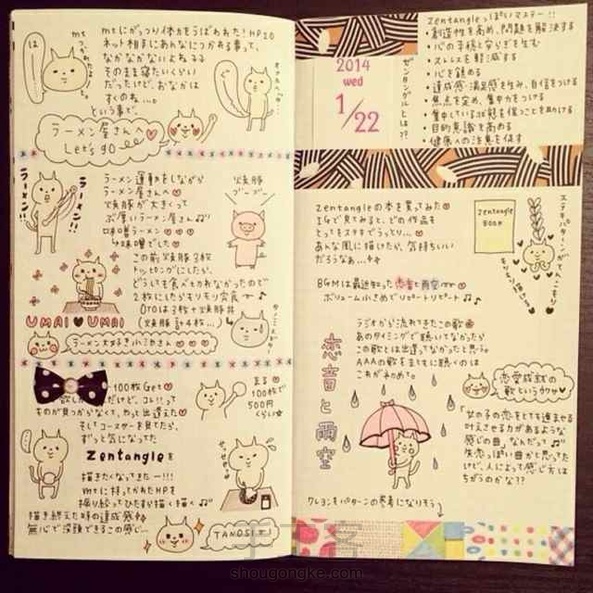 は
mt
つかれたよ
mtにがっつり体力をうばわれた!HP20
ネット相手にあんなにつかれる事って、
なかなかないよねぇ
そのまま寝たいくらい
だったけど、おなかは
すくのね…。
という事で、
ラーメン屋さんへ
Let's go
ラーメン!!
ラーメン!!
ラーメン運動をしながら
ラーメン屋さんへ
焼豚が大きくって
ぶ厚いラーメン屋さん♫
味噌ラーメン
この前焼豚3枚
トッピングにしたら、
どうしても食べきれなかったので
2枚にしたらモリモリ完食
焼豚
ブーブー
UMAI♥UMAI
ラーメン大好き小池さん
100枚Get
ものが見つからなくて、やっと出逢えた
そしてコースターを見てたら、
ずっと気になってた
Zentangleを
描きたくなってきたー!!!
mtに持ってかれたHPを
振り絞ってひたすら描く描く♫
描き終えた時の達成感
無心で没頭できるこの感じ…
100枚で
500円
くらい
TANOSII!
2014
wed
1/22
ゼンタングルとは??
Zentangleっぽいマステー!!
・創造性を高め、問題を解決する
・心の手綱と安らぎを生む
・ストレスを軽減する
・心を鎮める
・達成感・満足感を生み、自信をつける
・焦点を定め、集中力をつける
・目的意識を高める
・健康への注意を促す
Zentangleの本を買ってみた
IGで見てみると、どの作品も
とってもステキでうっとり。
あんな風に描けたら、気持ちいい
だろうなぁ…
Zentangle
BOOK
BGMは最近知った恋音と雨空
ボリューム小さめでリピートリピート♫
恋音と雨空
ラジオから流れてきたこの歌
あのタイミングで聴いてなかったら
この歌とは出逢ってなかったと思う。
AAAの歌をまともに聴くのは
これがはじめて。
恋愛成就の
歌というウワサ
「女の子の恋をとても進ませる
叶えさせる力があるような
感じの曲」なんだって♫
失恋っぽい曲かと思ってた
けど、人によって感じ方は
ちがうのかな??
クレヨンをパターンの参考になりそう
shougongke.com